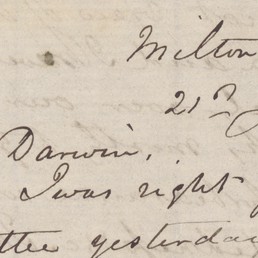 Milton
21st
Darwin,
I was right
yesterday